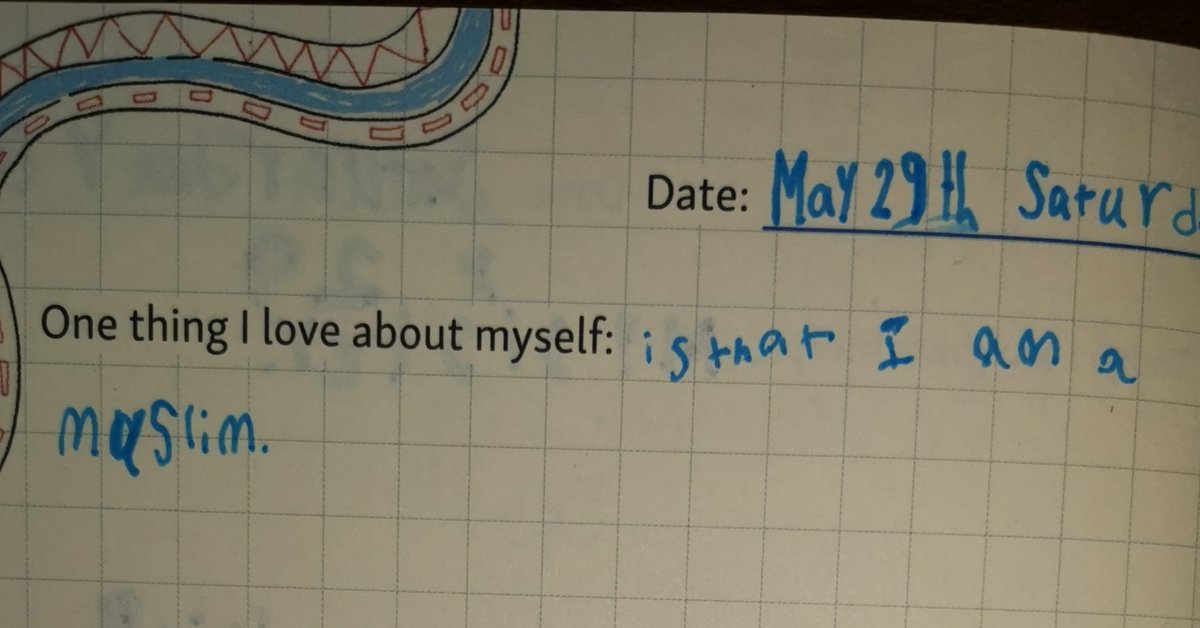 Date: May 29th Saturd
One thing I love about myself: is that I am a
muslim.